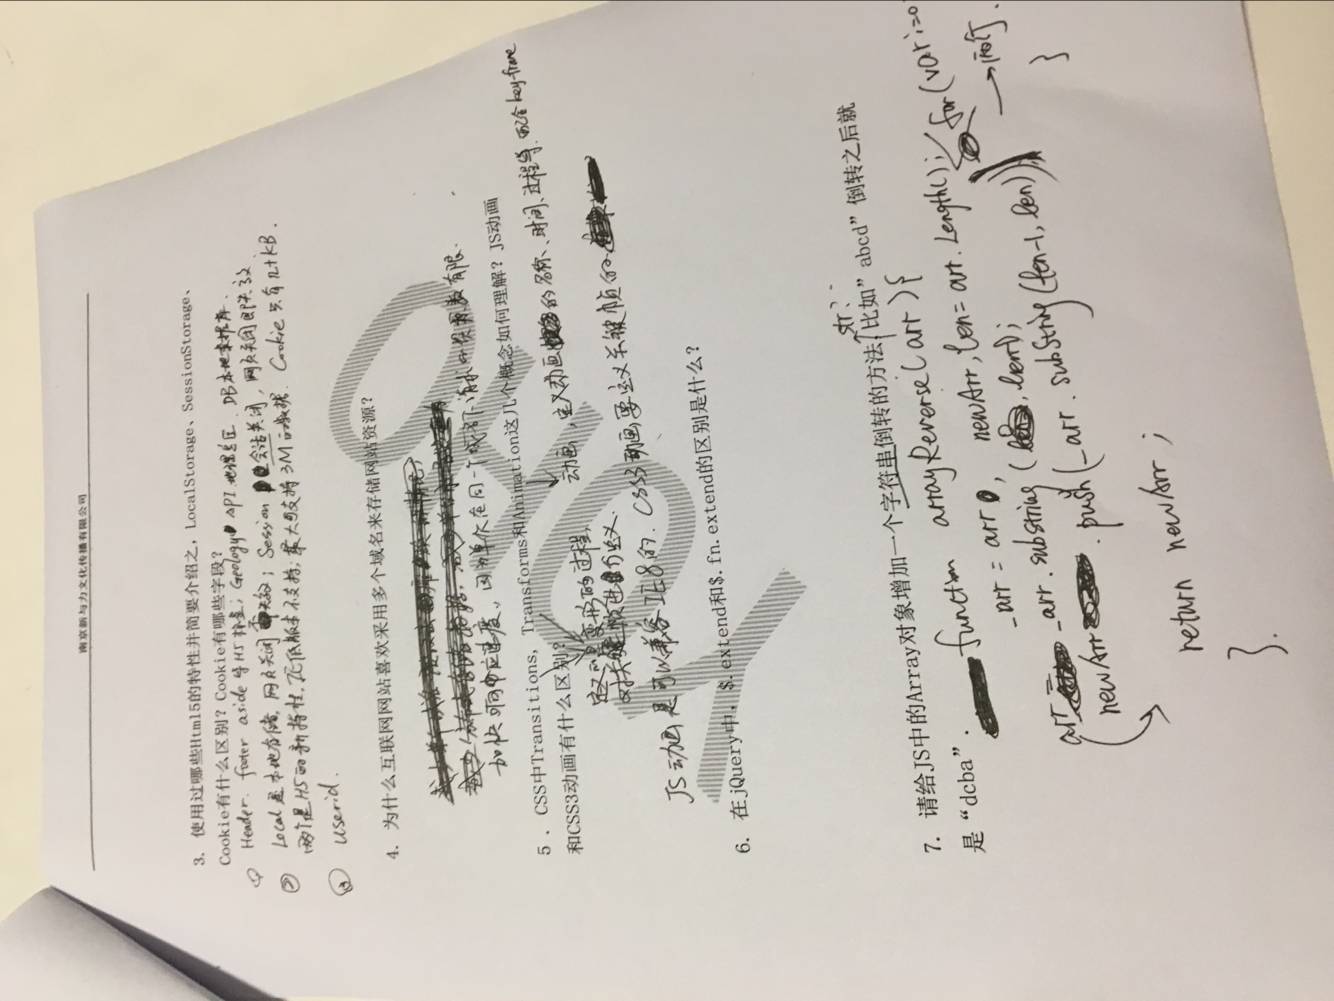 南京新与力文化传播有限公司
3. 使用过哪些Html5的特性并简要介绍之，LocalStorage、SessionStorage、
Cookie有什么区别？Cookie有哪些字段？
① Header. footer aside 等H5标签； API 地理 DB本地数据库.
② Local是本地存储, 网页关闭 失效；Session 会话关闭，网页关闭即失效
两个是H5的新特性, IE低版本不支持；最大可支持3M的数据. Cookie只有几十KB.
③ userid.
4. 为什么互联网网站喜欢采用多个域名来存储网站资源？
加快响应速度, 因为单次在同一个域名下请求的资源数有限.
5 . CSS中Transitions, Transforms和Animation这几个概念如何理解？JS动画
和CSS3动画有什么区别？
动画, 定义动画 的名称、时间、过程等. 配合key-frame
定义 变形的过程,
对关键帧进行定义.
JS动画是可以兼容IE8的. CSS3动画要定义关键帧的
6. 在jQuery中，$.extend和$.fn.extend的区别是什么？
str?
7. 请给JS中的Array对象增加一个字符串倒转的方法，比如”abcd”倒转之后就
是“dcba”.
function arrayReverse(arr){
_arr = arr, newArr, len= arr.Length(); for(var i=0
arr = _arr.substring( , len); → 两行.
newArr .push(_arr.subString(len-1, len)) }
return newArr ;
}.
YOHO